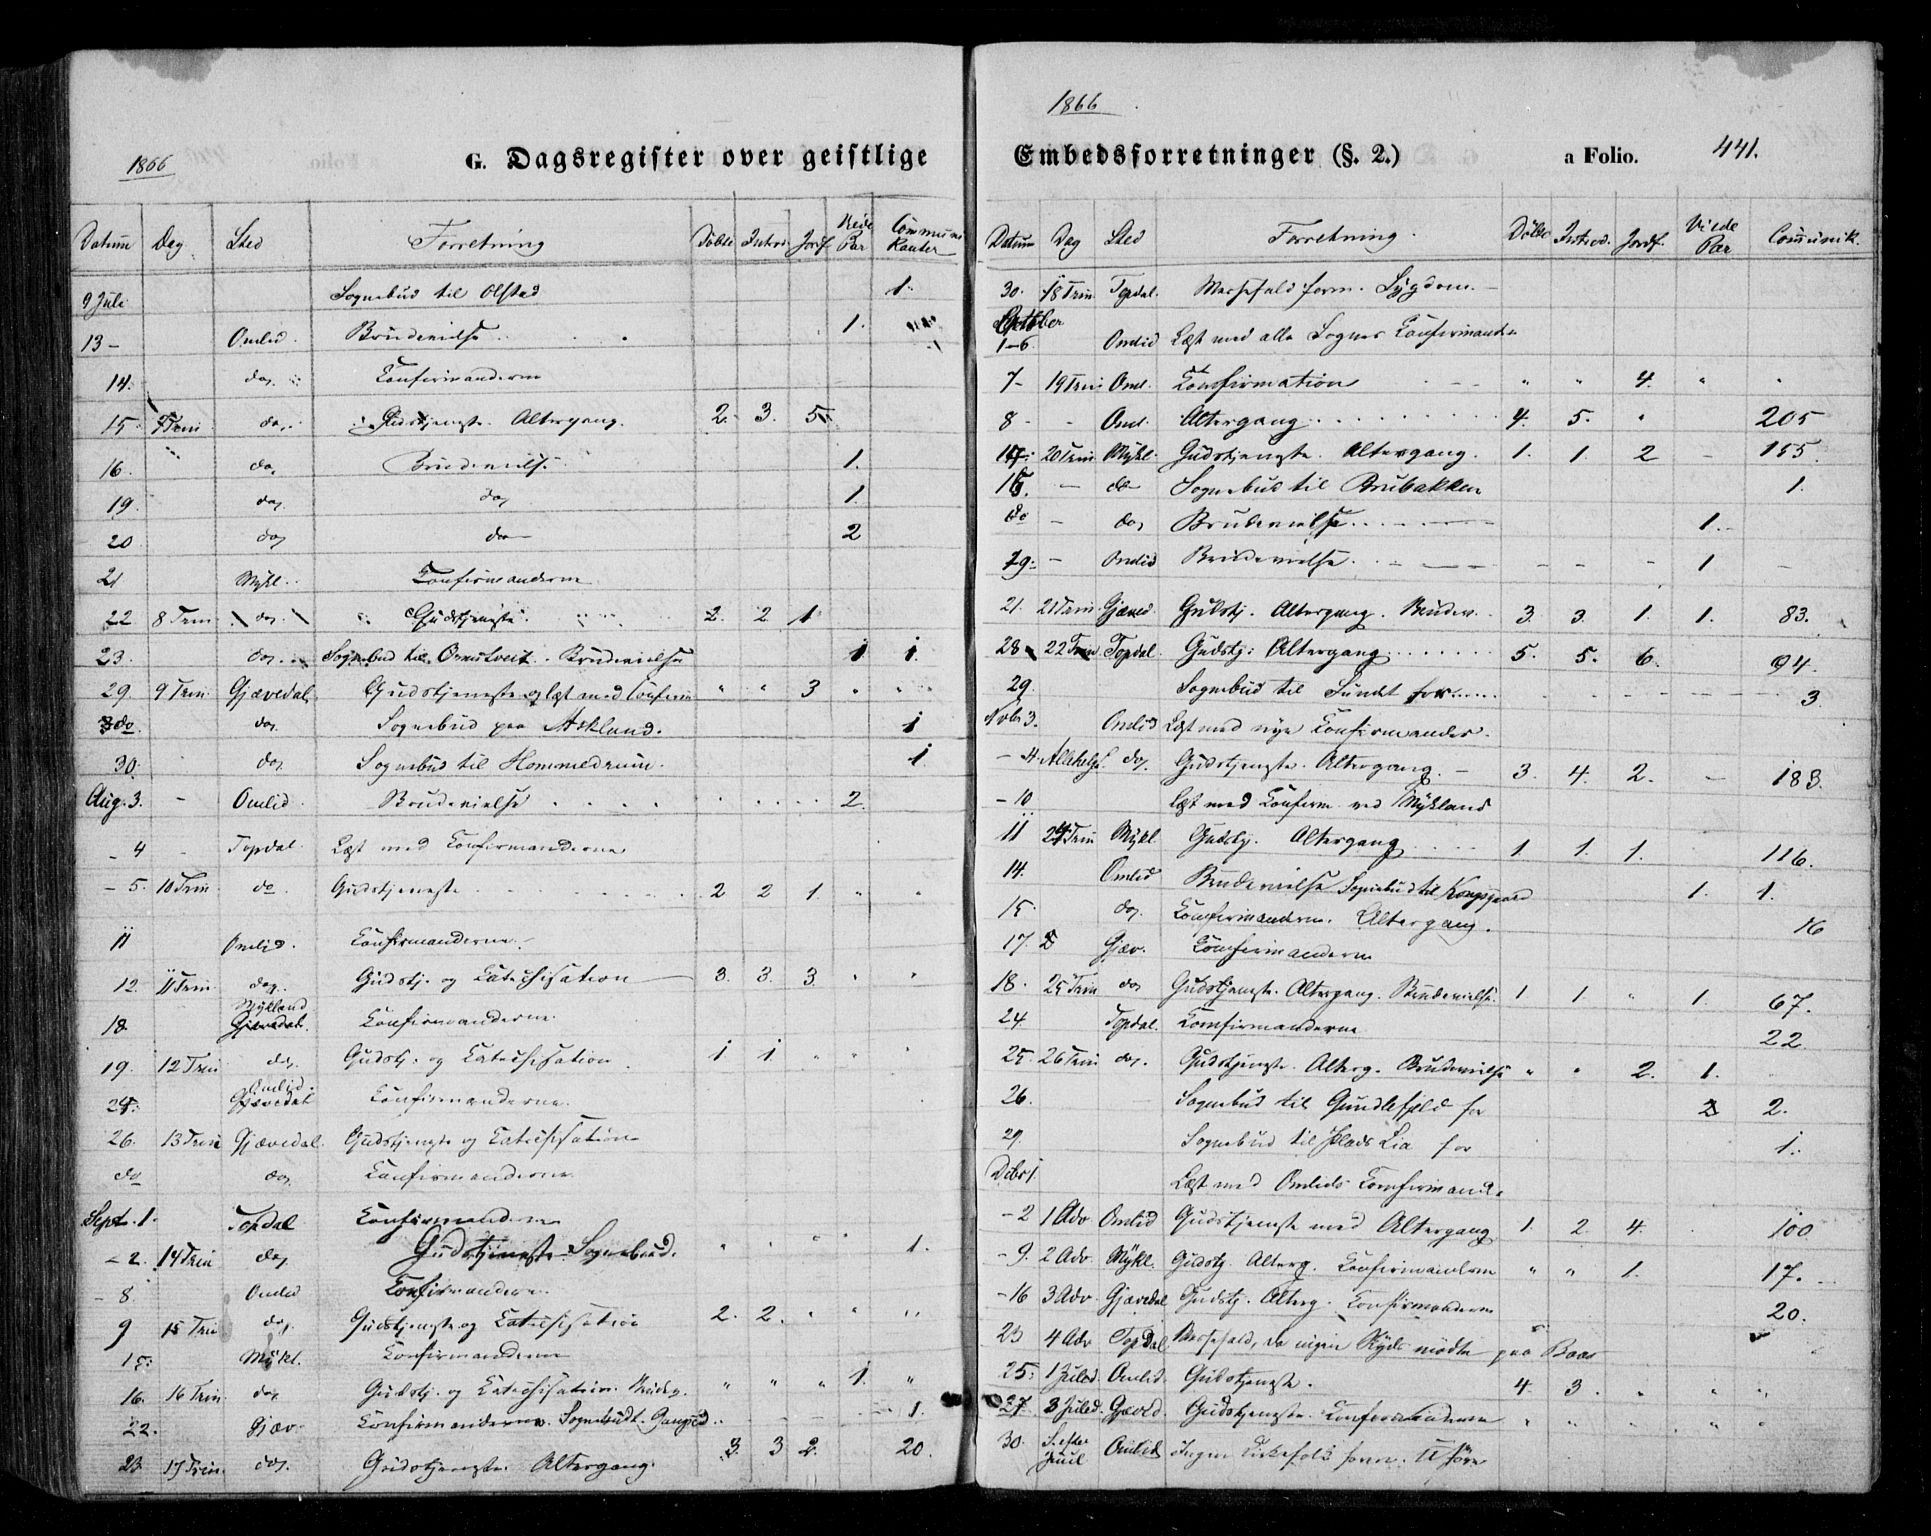 1866
G. Dagsregister over geistlige
Datum Dag Sted Forretning Døbte Introd. Jordf. Viede Par Communikanter
9 Juli Sognebud til Olstad 1.
13 - Omlid. Brudevielse 1.
14. do. Confirmanderne
15. 7 Trin do. Gudstjeneste. Altergang. 2. 3. 5
16. do. Brudevielse 1.
19. do. do. 1.
20 do. do 2
21 Mykl. Confirmanderne
22 8 Trin do. Gudstjeneste. 2. 2 1
23. do. Sognebud til Omutveit. Brudevielse 1 1.
29. 9 Trin. Gjævedal. Gudstjeneste og læst med Confirm " " 3 " "
do do. Sognebud paa Askland. 1
30. do. Sognebud til Hommedrum. 1.
Aug. 3. - Omlid. Brudevielse 2.
- 4 - Topdal. Læst med Confirmanderne
- 5. 10 Trin. do. Gudstjeneste 2 2 1. " "
11 Omlid. Confirmanderne.
12. 11 Trin do. Gudstj. og Catechisation 3. 3. 3. " "
18. Mykland Gjævedal. Confirmanderne.
19. 12 Trin do. Gudstj. og Catechisation 1 1 " " "
24. Omlid. Gjævedal Confirmanderne.
26. 13 Trin Gjævedal. Gudstjeneste og Catechisation
do do. Confirmanderne.
Sept. 1. Topdal Confirmanderne
- 2. 14 Trin do. Gudstjeneste Sognebud. " " " " 1.
- 8. Omlid Confirmanderne.
9 15 Trin do. Gudstjeneste og Catechisation 2. 2. " " "
15. Mykl. Confirmanderne
16. 16 Trin. do. Gudstj. og Catechisation. Brudev. " " " 1. "
22. Gjæv. Confirmanderne. Sognebud t. 1.
23 17 Trin. do. Gudstjeneste. Altergang. 3. 3 2. 20.
1866
Embedsforretninger (§. 2.) a Folio. 441.
Datum Dag Sted Forretning. Døbte Introd. Jordf. Viede Par Comunik.
30. 18 Trin. Topdal. Messefald form. Sygdom.
Oktober
1-6. Omlid Læst med alle Sognes Confirmander
7 - 19 Trin Oml. Confirmation " " 4. " "
8 - - Oml. Altergang 4. 5. " 205
14. 20 Trin. Mykl. Gudstjeneste. Altergang. 1. 1. 2 - 155.
15. - do Sognebud til Brubakken 1.
do - do. Brudevielse 1.
19. - Omlid Brudevielse 1
21. 21 Trin. Gjæved. Gudstj. Altergang. Brudev. 3. 3. 1. 1. 83.
28 22 Trin Topdal. Gudstj. Altergang 5. 5. 6. 94.
29. Sognebud til Sundet for 3.
Nvbr 3. Omlid Læst med nye Confirmander.
- 4 Allehelg. do. Gudstjeneste. Altergang. 3. 4. 2. - 183.
- 10 Læst med Confirm. ved Mykland
11 24 Trin Mykl. Gudstj. Altergang 1. 1. 1. 116.
14. Omlid Brudevielse Sognebud til Kongsgaard 1. 1.
15. do. Confirmanderne. Altergang. 16
17. Gjæv. Confirmanderne
18. 25 Trin do Gudstjeneste. Altergang. Brudevielse. 1 1. " 1. 67.
24. Topdal. Confirmanderne 22.
25. 26 Trin do. Gudstjeneste. Alterg. Brudevielse " " 2. 1.
26. Sognebud til Gundlefjeld for 2.
29. Sognebud til Plads Lia for 1.
Decbr 1. Læst med Omlids Confirmand.
- 2 1 Adv Omlid Gudstjeneste med Altergang 1. 2 4. 100
- 9. 2 Adv Mykl. Gudstj. Alterg. Confirmanderne " " 1. 17.
- 16 3 Adv. Gjævedal Gudstj. Alterg. Confirmanderne 20.
23 4 Adv Topdal Messefald, da ingen Skyds mødte paa Baas
25. 1 Juled. Omlid. Gudstjeneste. 4. 3. " " "
27. 3 Juled. Gjæved. Gudstjeneste. Confirmanderne " " " " "
30. S. efter Juul Omlid Ingen Kirkefolk form. Uføre